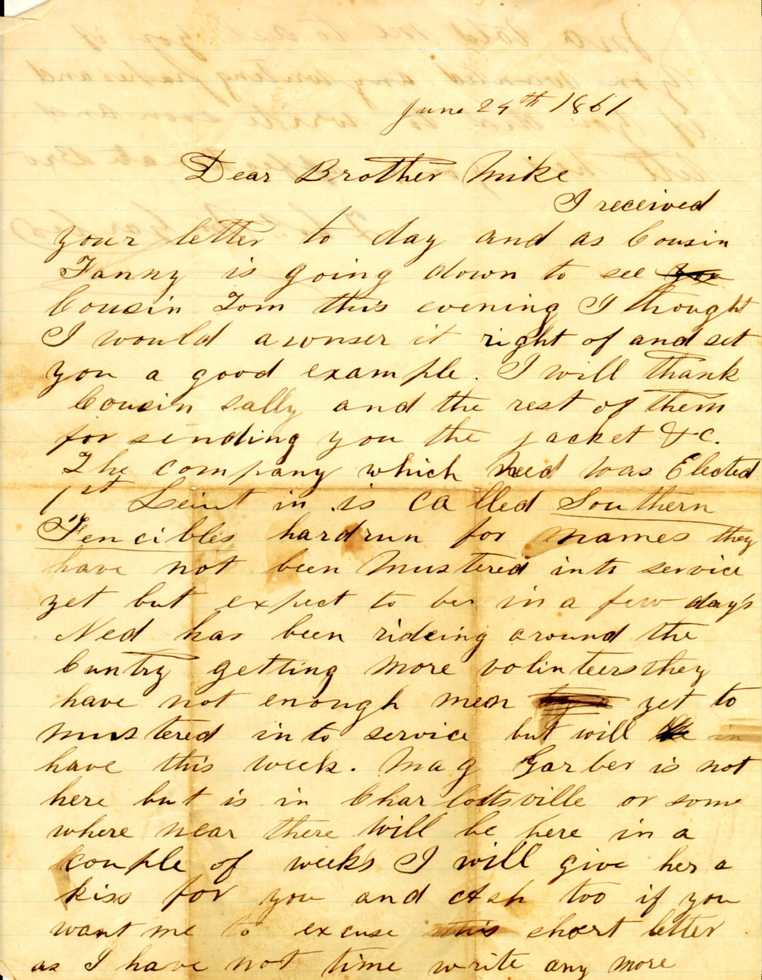 June 24th 1861
Dear Brother Mike
I received
your letter to day and as Cousin
Fanny is going down to see
Cousin Tom this evening I thought
I would awnser it right of and set
you a good example. I will thank
Cousin Sally and the rest of them
for sending you the jacket &c.
The company which Ned was Elected
1st Leiut in is called Southern
Fencibles hardrun for names they
have not been mustered into service
yet but expect to be in a few day's
Ned has been rideing around the
Cuntry getting more volinteers they
have not enough men yet to
mustered into service but will
have this week. Mag Garber is not
here but is in Charlottsville or some
where near there will be here in a
couple of weeks I will give her a
kiss for you and too if you
want me to excuse this short letter
as I have not time write any more